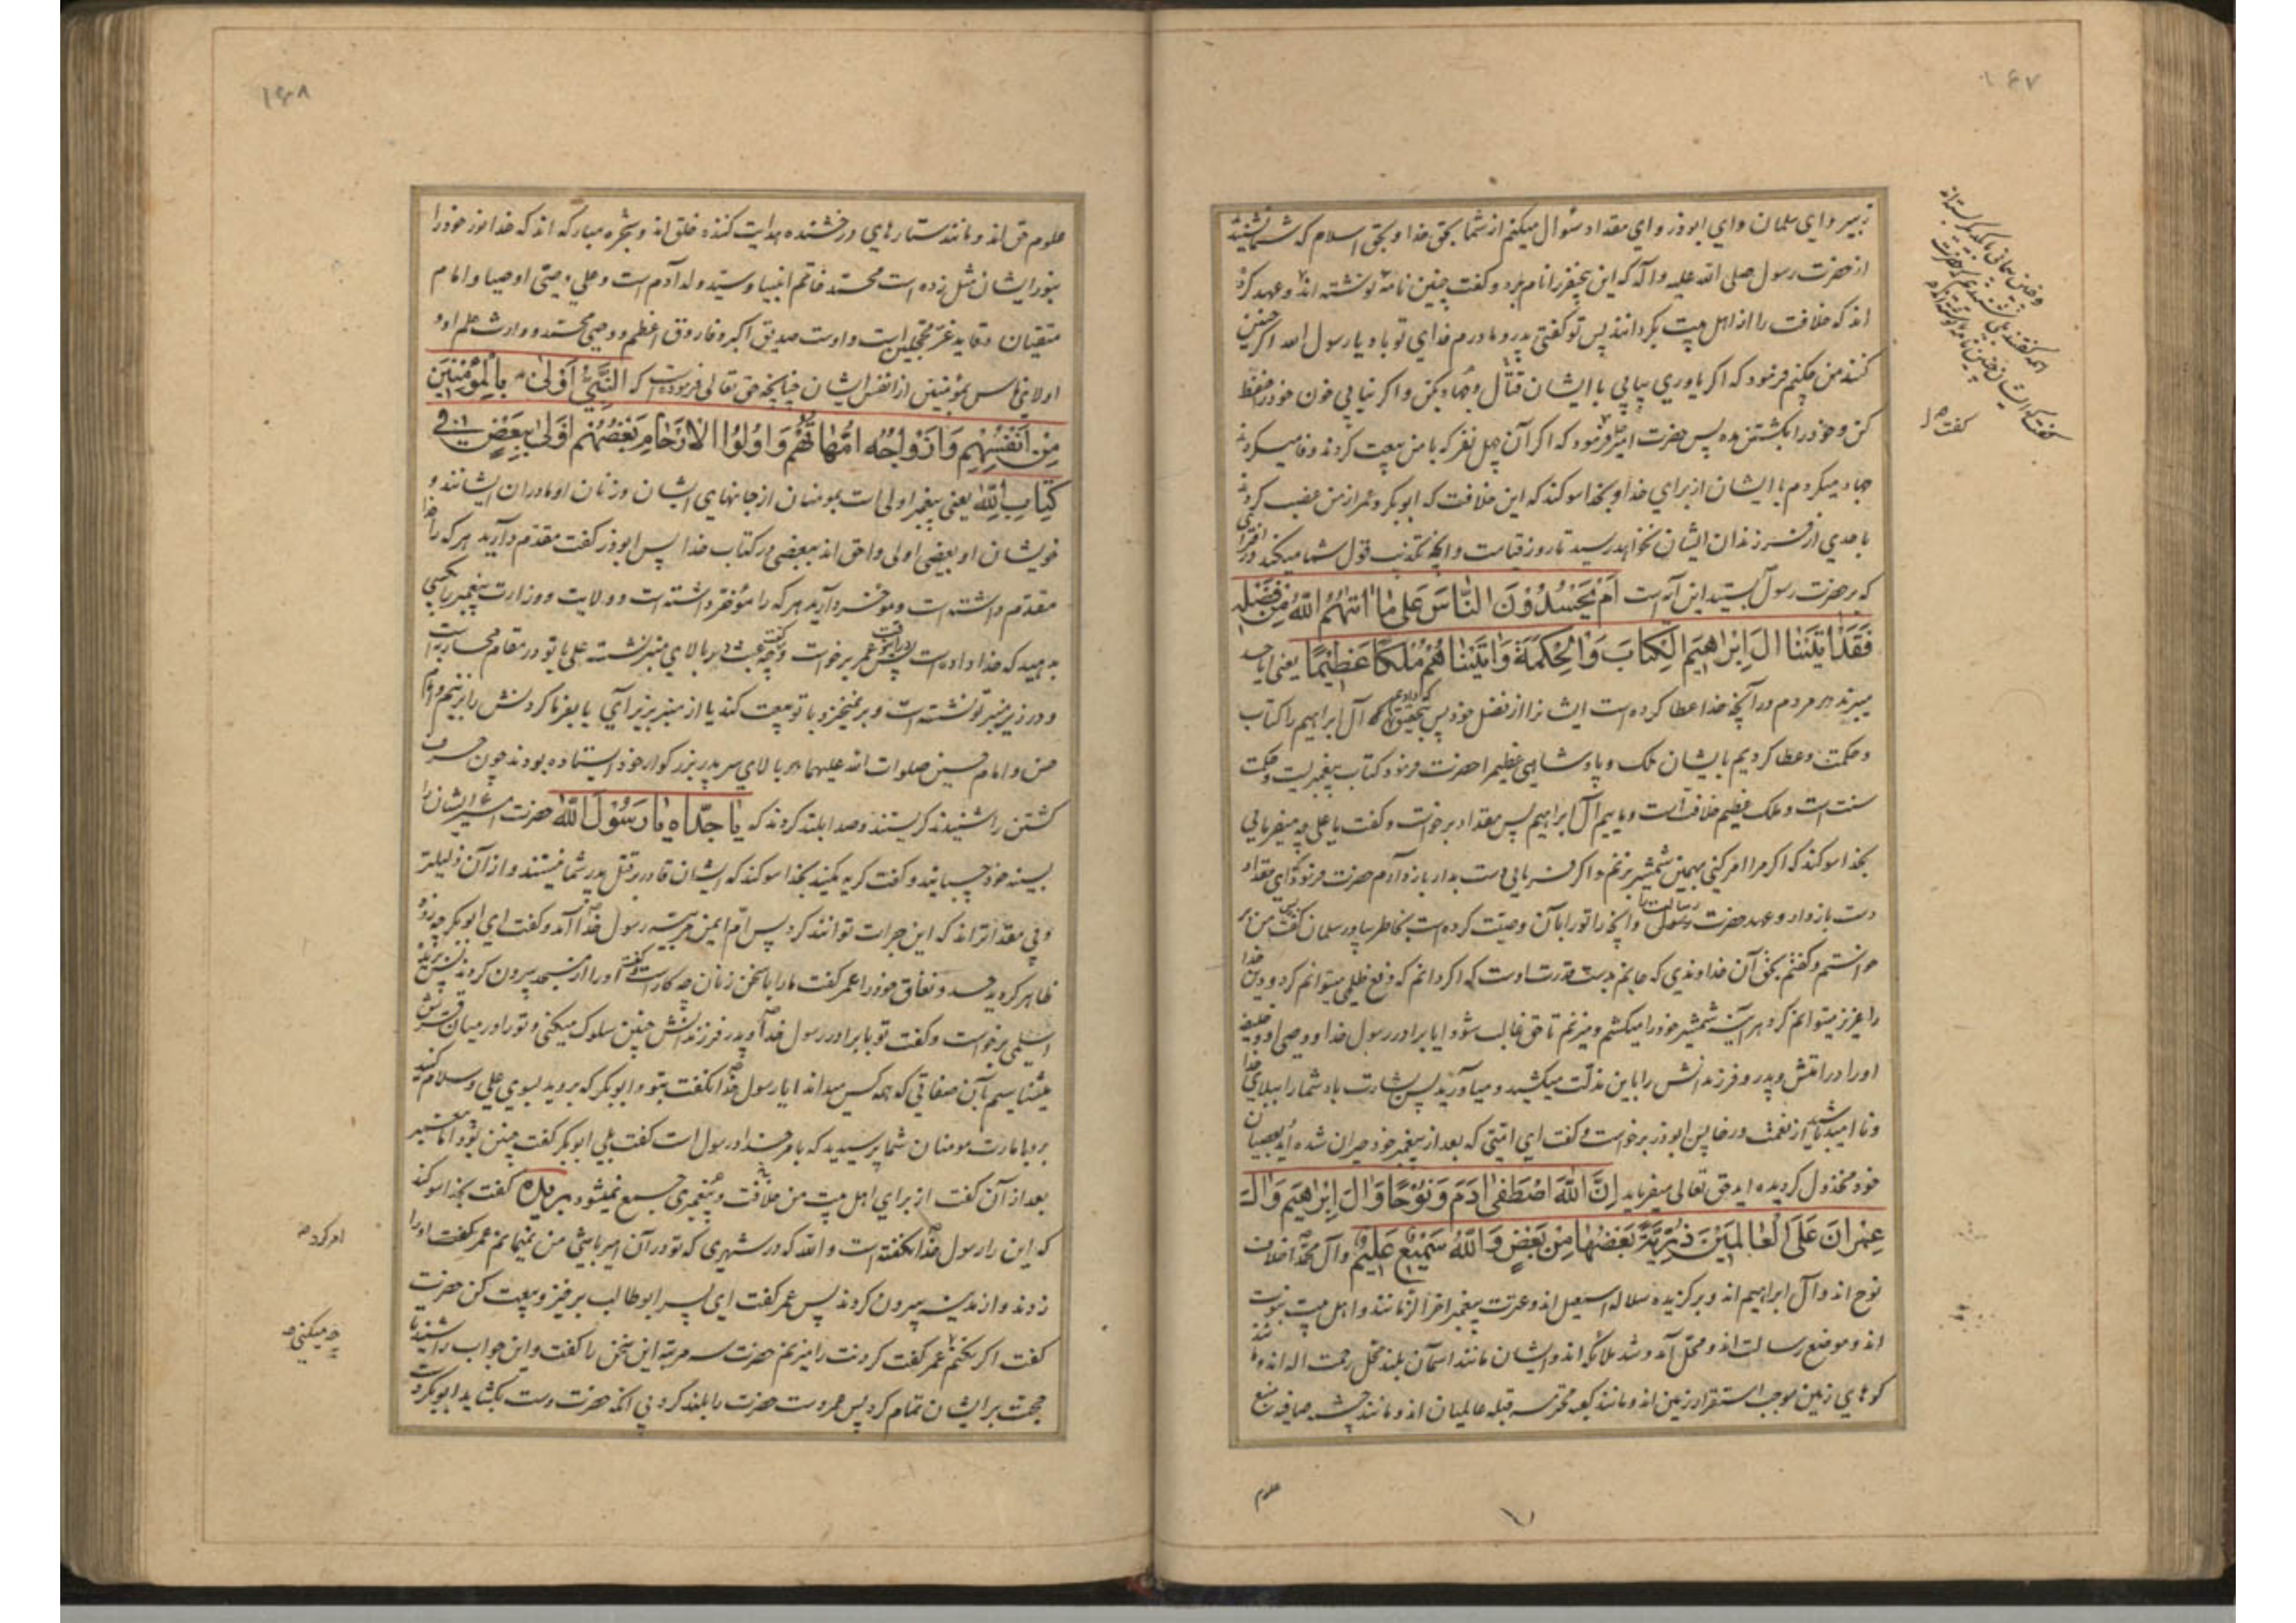 ۱۶۷
زبیر و ای سلمان و ای ابوذر و ای مقداد سؤال میکنم از شما بحق خدا و بحق اسلام که شما شنیدید
از حضرت رسول صلی الله علیه و آله که این پنج نفر را نام برد و گفت چنین نامهٔ نوشته اند و عهد کرده
اند که خلافت را از اهل بیت بگردانند پس تو گفتی پدر و مادرم فدای تو باد یا رسول الله اگر چنین
کنند من چکنم فرمود که اگر یاوری بیابی با ایشان قتال و جهاد بکن و اگر نیابی خون خود را حفظ
کن و خود را بکشتن مده پس حضرت امیر فرمود که اگر آن چهل نفر که با من بیعت کردند وفا میکردند
جهاد میکردم با ایشان از برای خدا و بخدا سوکند که این خلافت که ابوبکر و عمر از من غصب کردند
باحدی از فرزندان ایشان نخواهد رسید تا روز قیامت و آنچه تکذیب قول شما میکند در افترای
که بر حضرت رسول بستید این آیه است اَمْ یَحْسُدُوْنَ النّاسَ عَلٰی ما اٰتٰهُمُ اللّٰهُ مِنْ فَضْلِهِ
فَقَدْ اٰتَیْنٰا اٰلَ اِبْرٰاهِیْمَ الْکِتابَ وَالْحِکْمَةَ وَاٰتَیْنٰاهُمْ مُلْکًا عَظِیْمًا یعنی آیا حسد
میبرند بر مردم در آنچه خدا عطا کرده است ایشانرا از فضل خود پس بتحقیق که دادیم آل ابراهیم را کتاب
و حکمت و عطا کردیم بایشان ملک و پادشاهی عظیم را حضرت فرمود کتاب پیغمبریست و حکمت
سنت است و ملک عظیم خلافت است و ماییم آل ابراهیم پس مقداد برخواست و گفت یا علی چه میفرمایی
بخدا سوکند که اگر مرا امر کنی بهمین شمشیر بزنم و اگر فرمایی دست بدار باز دارم حضرت فرمود ای مقداد
دست باز دار و عهد حضرت رسول و آنچه را تو را بآن وصیت کرده است بخاطر بیاور سلمان گفت پس من بر
خواستم و گفتم بحق آن خداوندی که جانم بدست قدرت اوست که اگر دانم که دفع ظلمی میتوانم کرد و دین خدا
را عزیز میتوانم کرد هر آینه شمشیر خود را میکشم و میزنم تا حق غالب شود آیا برادر رسول خدا و وصی او و خلیفه
او را در امتش و پدر و فرزندانش را باین مذلت میکشید و میاورید پس بشارت باد شما را ببلای خدا
و ناامید باشید از نعمت و رخا پس ابوذر برخواست و گفت ای امتی که بعد از پیغمبر خود حیران شده اید بعصیان
خود مخذول گردیده اید حق تعالی میفرماید اِنَّ اللّٰهَ اصْطَفٰی اٰدَمَ وَنُوْحًا وَاٰلَ اِبْرٰهِیْمَ وَاٰلَ
عِمْرٰانَ عَلَی الْعٰالَمِیْنَ ذُرِّیَّةً بَعْضُهٰا مِنْ بَعْضٍ وَاللّٰهُ سَمِیْعٌ عَلِیْمٌ و آل محمد اخلاف
نوح اند و آل ابراهیم اند و برگزیده سلاله اسمعیل اند و عترت پیغمبر آخر الزمانند و اهل بیت نبوت
اند و موضع رسالت اند و محل آمد و شد ملائکه اند و ایشان مانند آسمان بلند محل رحمت اله اند و مانند
کوهای زمین موجب استقرار زمین اند و مانند کعبه محترمه قبله عالمیان اند و مانند چشمه صافیه منبع
علوم
۱۶۸
علوم حق اند و مانند ستارهای درخشنده هدایت کننده خلق اند و شجره مبارکه اند که خدا نور خود را
بنور ایشان مثل زده است محمد خاتم انبیا و سید ولد آدم است و علی وصی اوصیا و امام
متقیان و قاید غر محجلین است و اوست صدیق اکبر و فاروق اعظم و وصی محمد و وارث علم او و
اولای ناس بمؤمنین از انفس ایشان چنانچه حق تعالی فرموده است که اَلنَّبِیُّ اَوْلٰی بِالْمُؤْمِنِیْنَ
مِنْ اَنْفُسِهِمْ وَاَزْوٰاجُهُ اُمَّهٰاتُهُمْ وَاُولُوا الْاَرْحٰامِ بَعْضُهُمْ اَوْلٰی بِبَعْضٍ فِی
کِتٰابِ اللّٰهِ یعنی پیغمبر اولی است بمومنان از جانهای ایشان و زنان او مادران ایشانند و
خویشان او بعضی اولی و احق اند ببعضی در کتاب خدا پس ابوذر گفت مقدم دارید هر که را خدا
مقدم داشته است و مؤخر دارید هر که را مؤخر داشته است و ولایت و وزارت پیغمبر را بکسی
بدهید که خدا داده است پس عمر برخواست و گفت بر بالای منبر نشسته علی با تو در مقام محاربه است
و در زیر منبر تو نشسته است و برنمیخیزد با تو بیعت کند یا از منبر بزیر آی یا بفرما گردنش را بزنیم و امام
حسن و امام حسین صلوات الله علیهما بر بالای سر پدر بزرگوار خود ایستاده بودند چون حرف
کشتن را شنیدند گریستند و صدا بلند کردند که یٰا جَدّٰاه یٰا رَسُوْلَ اللّٰه حضرت امیر ایشان را
بسینه خود چسبانید و گفت گریه مکنید بخدا سوکند که ایشان قادر بر قتل پدر شما نیستند و از آن ذلیلتر
و بی مقدارترند که این جرات توانند کرد پس ام ایمن مربیه رسول خدا آمد و گفت ای ابوبکر چه زود
ظاهر کردید حسد و نفاق خود را عمر گفت ما را با سخن زنان چه کار است و گفت او را از مسجد بیرون کردند پس بریده
اسلمی برخواست و گفت تو با برادر رسول خدا و پدر فرزندانش چنین سلوک میکنی و تو را در میان قریش
میشناسیم بآن صفاتی که همه کس میداند آیا رسول خدا نگفت بتو و ابوبکر که بروید بسوی علی و سلام کنید
بر او بامارت مومنان شما پرسیدید که بامر خدا و رسول است گفت بلی ابوبکر گفت چنین بود اما پیغمبر
بعد از آن گفت از برای اهل بیت من خلافت و پیغمبری جمع نمیشود بریده گفت بخدا سوکند
که این را رسول خدا نگفته است و الله که در شهری که تو در آن امیر باشی من نمیمانم عمر گفت او را
زدند و از مدینه بیرون کردند پس عمر گفت ای پسر ابوطالب برخیز و بیعت کن حضرت
گفت اگر نکنم عمر گفت گردنت را میزنم حضرت سه مرتبه این سخن را گفت و این جواب را شنید تا
حجت بر ایشان تمام کرد پس عمر دست حضرت را بلند کرد بی آنکه حضرت دست بگشاید ابوبکر دست
امر کرد
چه میکنی